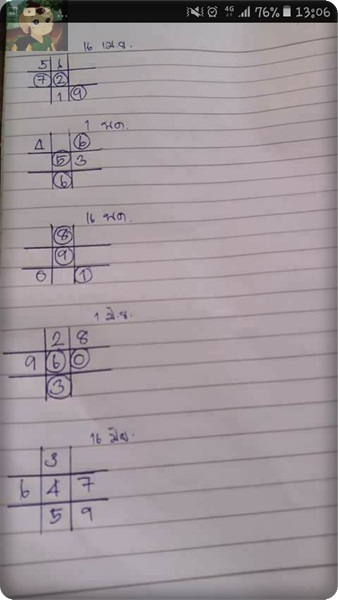 4G 76% 13:06
16 เม.ย.
5 6
7 2
1 9
1 พ.ค.
4 6
5 3
6
16 พ.ค.
8
9
0 1
1 มิ.ย.
2 8
9 6 0
3
16 มิ.ย.
3
6 4 7
5 9